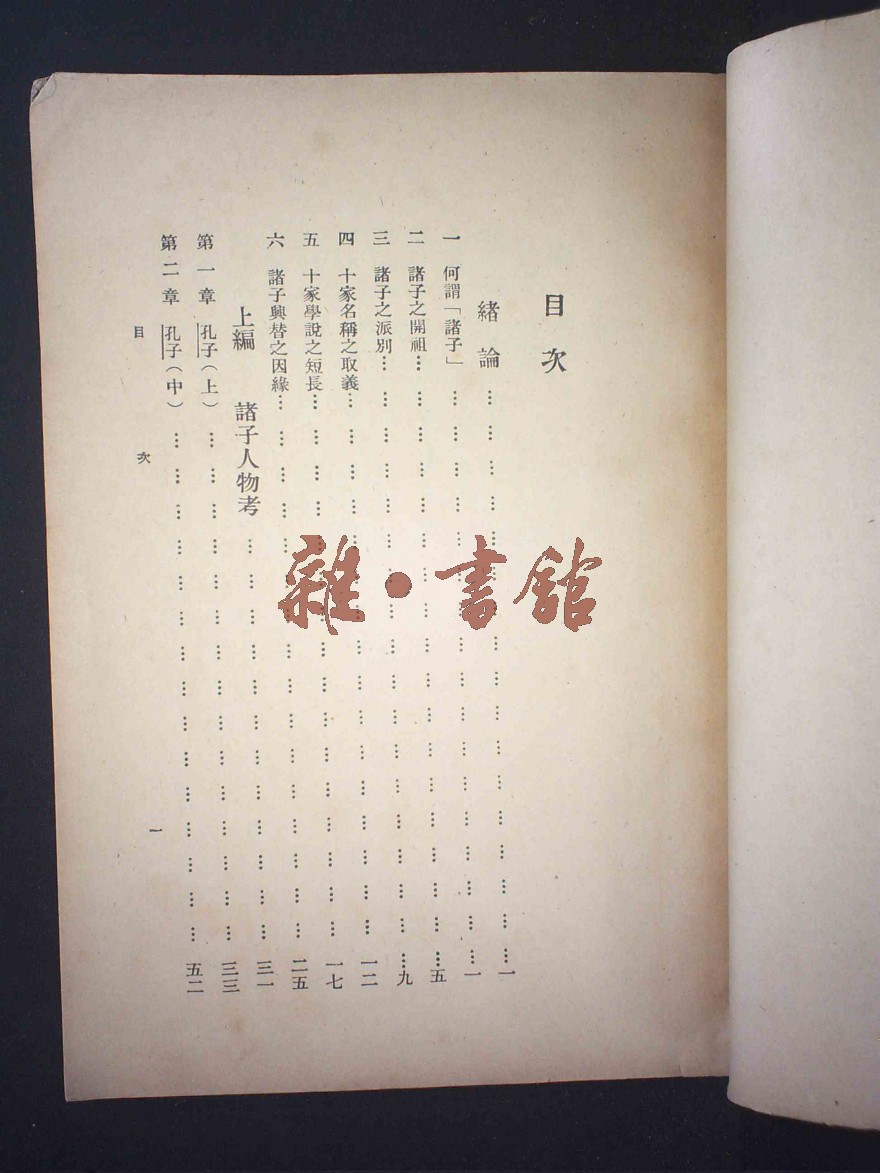 目次
緒論………………………………………………一
一　何謂「諸子」………………………………………………一
二　諸子之開祖………………………………………………五
三　諸子之派別………………………………………………九
四　十家名稱之取義………………………………………………一二
五　十家學說之短長………………………………………………一七
六　諸子興替之因緣………………………………………………二五
上編　諸子人物考………………………………………………三一
第一章　孔子（上）………………………………………………三三
第二章　孔子（中）………………………………………………五二
目次　一
雜·書館